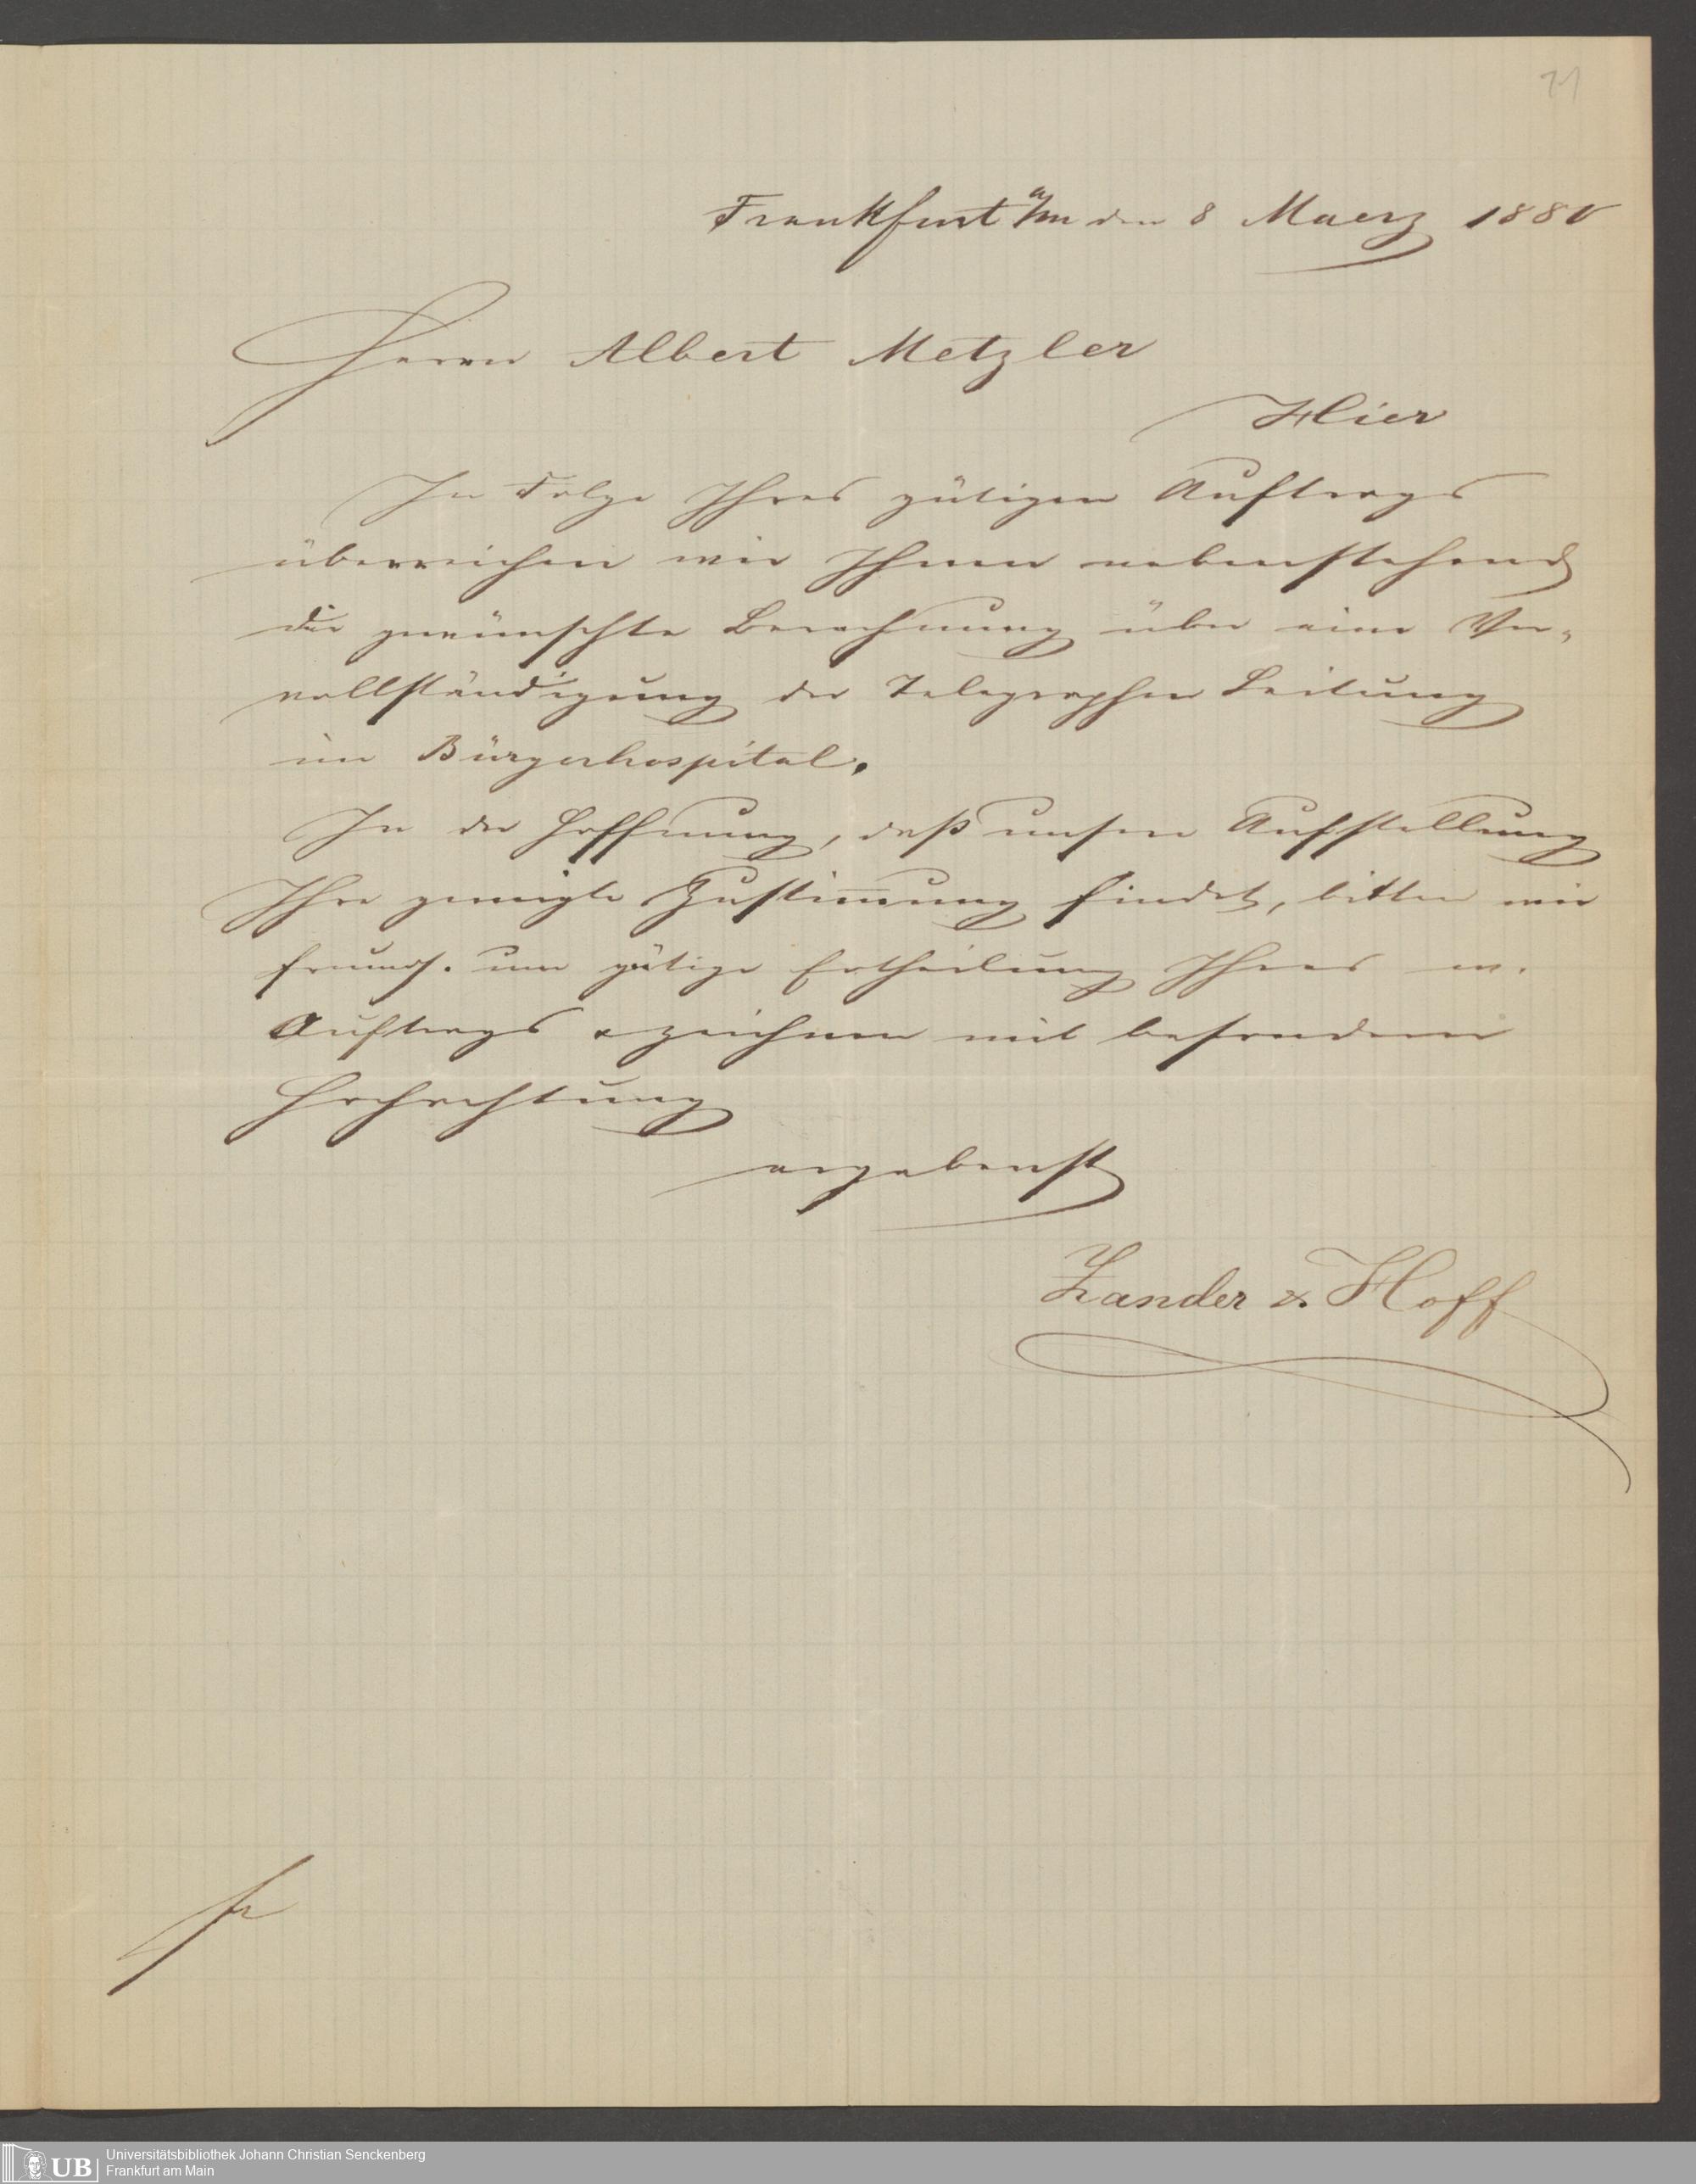 71
Frankfurt a/m den 8 Maerz 1880
Herrn Albert Metzler
Hier
In Folge Ihres gütigen Auftrags
überreichen wir Ihnen nebenstehend
die gewünschte Berechnung über eine Ver-
vollständigung der Telegraphen Leitung
im Bürgerhospital.
In der Hoffnung, daß unsere Aufstellung
Ihre geneigte Zustim̅ung findet, bitten wir
freundl. um gütige Ertheilung Ihres w.
Auftrags & zeichnen mit besonderer
Hochachtung
ergebenst
Zander & Hoff
UB
Universitätsbibliothek Johann Christian Senckenberg
Frankfurt am Main